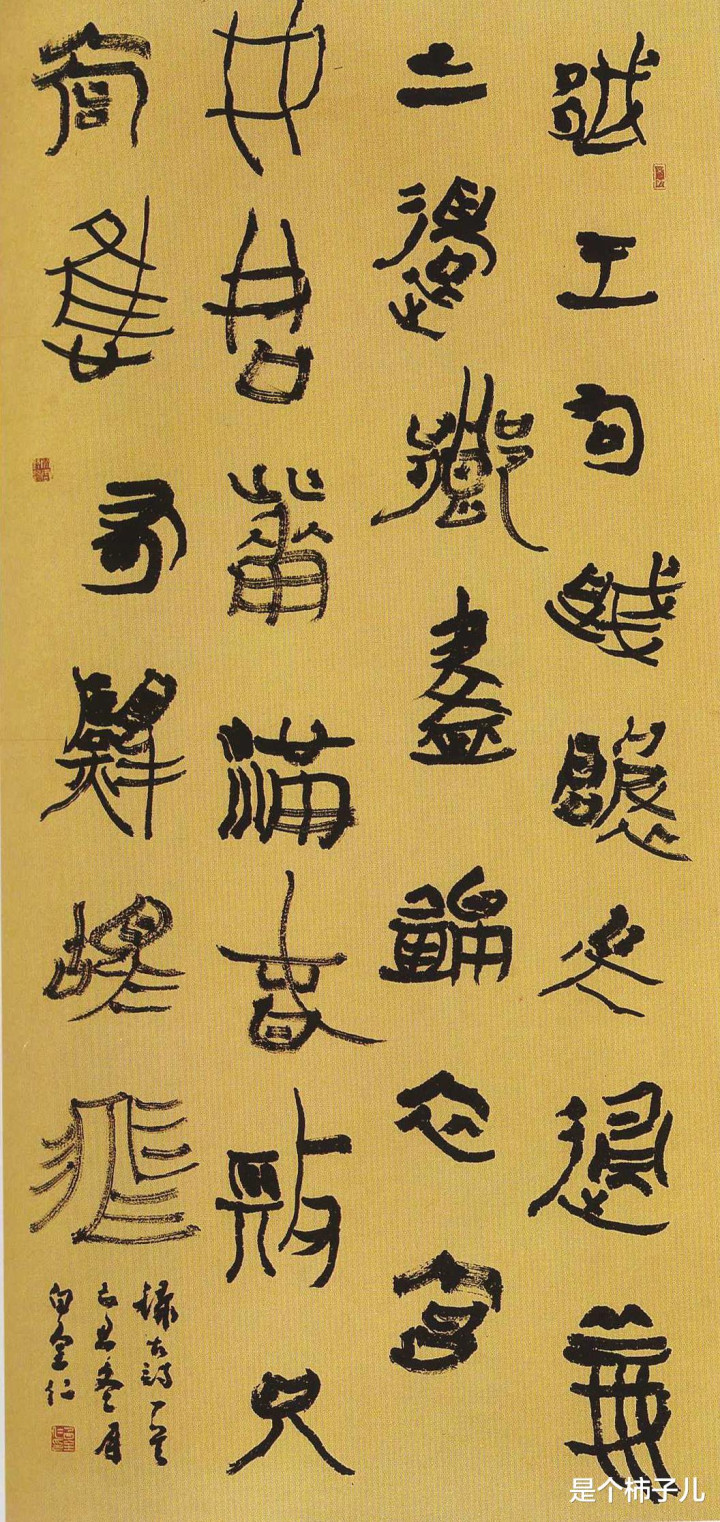 越王句踐破吳歸義
士還鄉盡錦衣宮
女如花滿春殿只
今惟有鷓鴣飛
錄古詩一首
己丑月
是个柿子儿